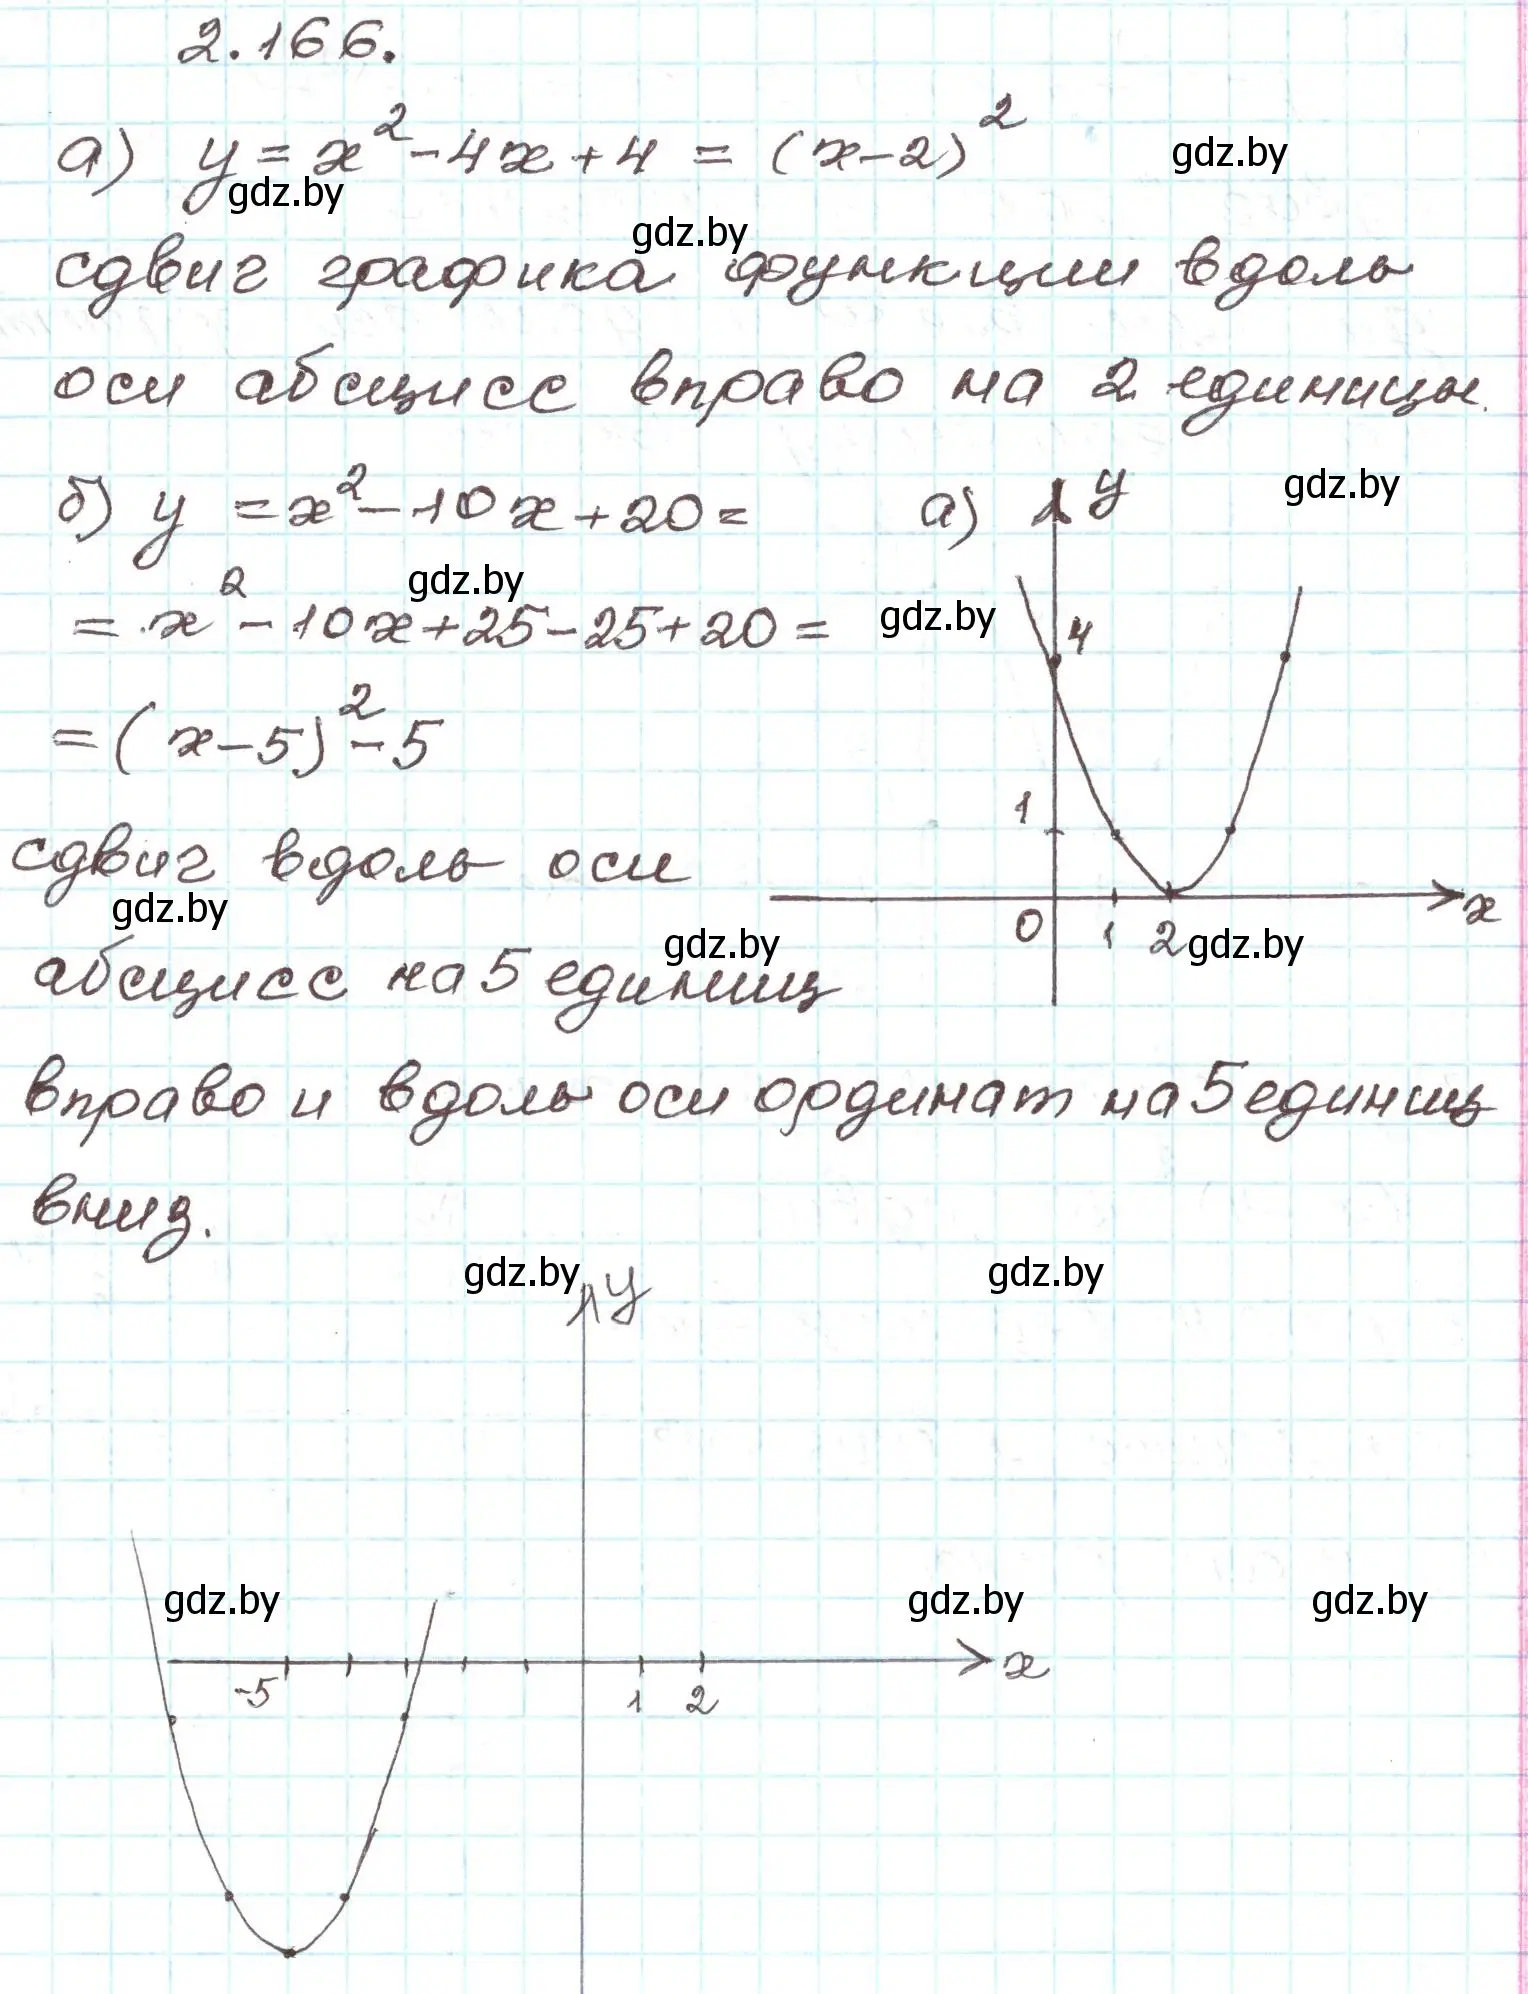 2.166.
а) y = x² - 4x + 4 = (x-2)²
gdz.by
gdz.by
gdz.by
сдвиг графика функции вдоль
оси абсцисс вправо на 2 единицы.
б) y = x² - 10x + 20 =
а) y
gdz.by
gdz.by
= x² - 10x + 25 - 25 + 20 =
gdz.by
4
= (x-5)² - 5
1
сдвиг вдоль оси
gdz.by
x
0 1 2
gdz.by
gdz.by
абсцисс на 5 единиц
вправо и вдоль оси ординат на 5 единиц
вниз.
gdz.by
y
gdz.by
gdz.by
gdz.by
gdz.by
x
-5 1 2